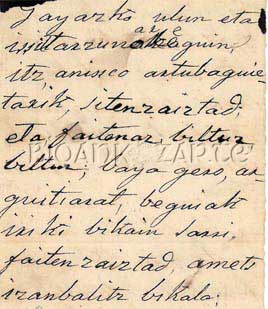 Jayarko ulun eta
issitarzunak eguin,
itz, anisco artubaguie-
taxik, sitenzairtad,
eta faitanar, biltur
biltur, baya gero, ar-
guitiarat, beguiak
isiki bikain sarri,
faitenzairtad, amets
izanbalitz bikala;